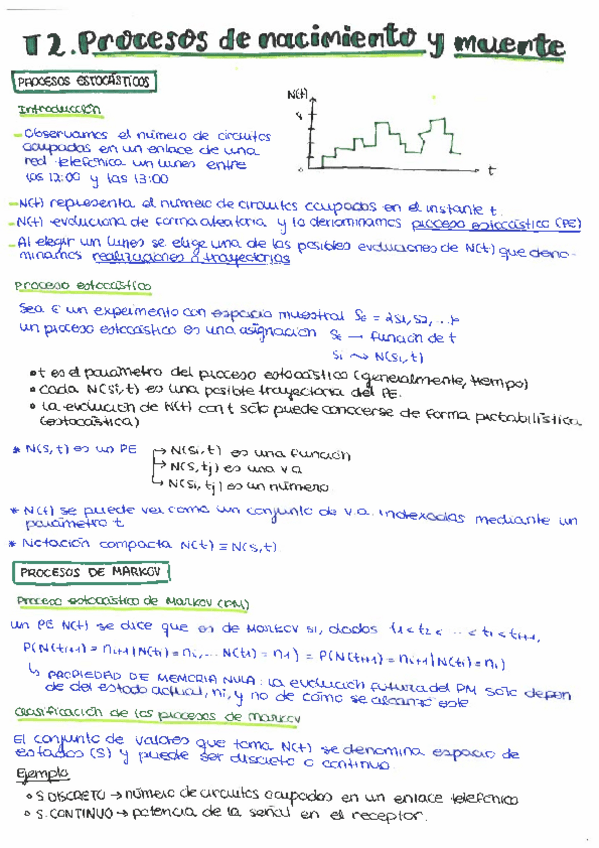 T2. Procesos de nacimiento y muerte
PROCESOS ESTOCÁSTICOS
Introducción
N(t)
t
- Observamos el número de circuitos
ocupados en un enlace de una
red telefónica un lunes entre
las 12:00 y las 13:00
- N(t) representa el número de circuitos ocupados en el instante t.
- N(t) evoluciona de forma aleatoria y lo denominamos proceso estocástico (PE)
- Al elegir un lunes se elige una de las posibles evoluciones de N(t) que deno-
minamos realizaciones o trayectorias
Proceso estocástico
Sea E un experimento con espacio muestral SE = {S1, S2, ...}
un proceso estocástico es una asignación SE → función de t
Si ⤳ N(Si, t)
• t es el parámetro del proceso estocástico (generalmente, tiempo)
• cada N(Si, t) es una posible trayectoria del PE.
• La evolución de N(t) con t sólo puede conocerse de forma probabilística
(estocástica)
* N(S, t) es un PE → N(Si, t) es una función
→ N(S, tj) es una v.a
→ N(Si, tj) es un número
* N(t) se puede ver como un conjunto de v.a. indexadas mediante un
parámetro t
* Notación compacta N(t) ≡ N(S, t).
PROCESOS DE MARKOV
Proceso estocástico de Markov (PM)
un PE N(t) se dice que es de Markov si, dados t1 < t2 < ... < ti < ti+1,
P(N(ti+1) = ni+1 | N(ti) = ni, ... N(t1) = n1) = P(N(ti+1) = ni+1 | N(ti) = ni)
↳ PROPIEDAD DE MEMORIA NULA: La evolución futura del PM sólo depen
de del estado actual, ni, y no de cómo se alcanzó este
Clasificación de los procesos de Markov
El conjunto de valores que toma N(t) se denomina espacio de
estados (S) y puede ser discreto o continuo.
Ejemplo
• S DISCRETO → número de circuitos ocupados en un enlace telefónico
• S. CONTINUO → potencia de la señal en el receptor.